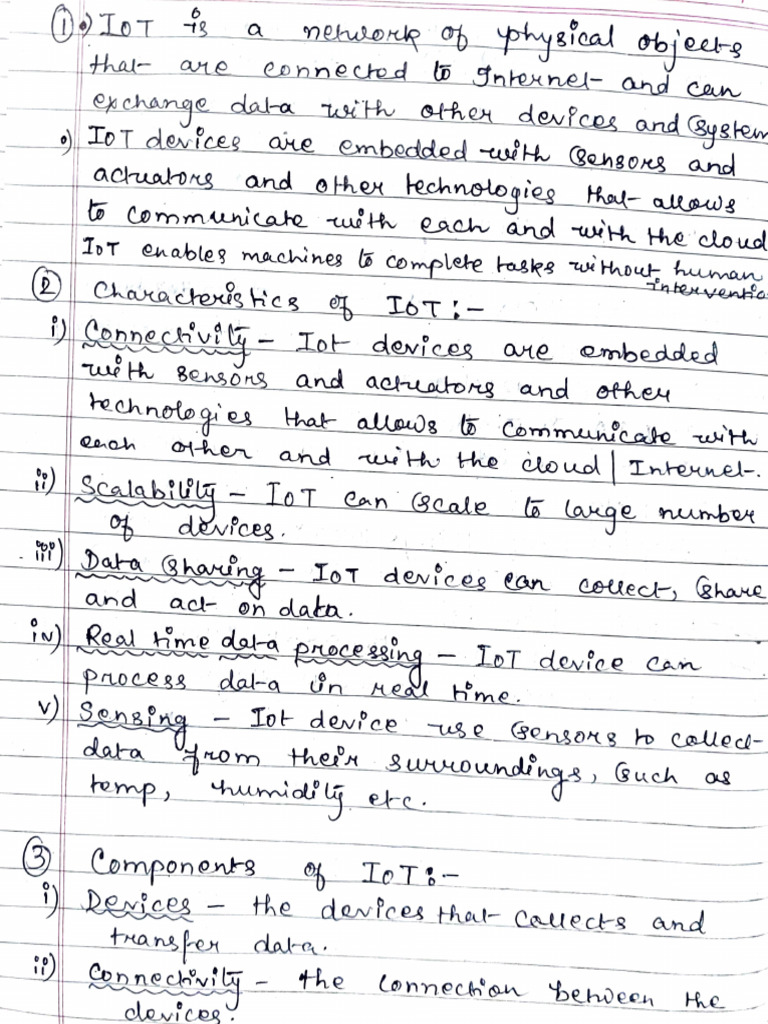 ① •) IoT is a network of physical objects
that are connected to Internet and can
exchange data with other devices and System
•) IoT devices are embedded with Sensors and
actuators and other technologies that allows
to communicate with each and with the cloud
IoT enables machines to complete tasks without human
interventio
② Characteristics of IoT :-
i) Connectivity - Iot devices are embedded
with sensors and actuators and other
technologies that allows to communicate with
each other and with the cloud | Internet.
ii) Scalability - IoT can Scale to large number
of devices.
iii) Data Sharing - IoT devices can collect, Share
and act on data.
iv) Real time data processing - IoT device can
process data in real time.
v) Sensing - Iot device use Sensors to collect
data from their surroundings, Such as
temp, humidity etc.
③ Components of IoT :-
i) Devices - the devices that collects and
transfer data.
ii) Connectivity - the connection between the
devices.